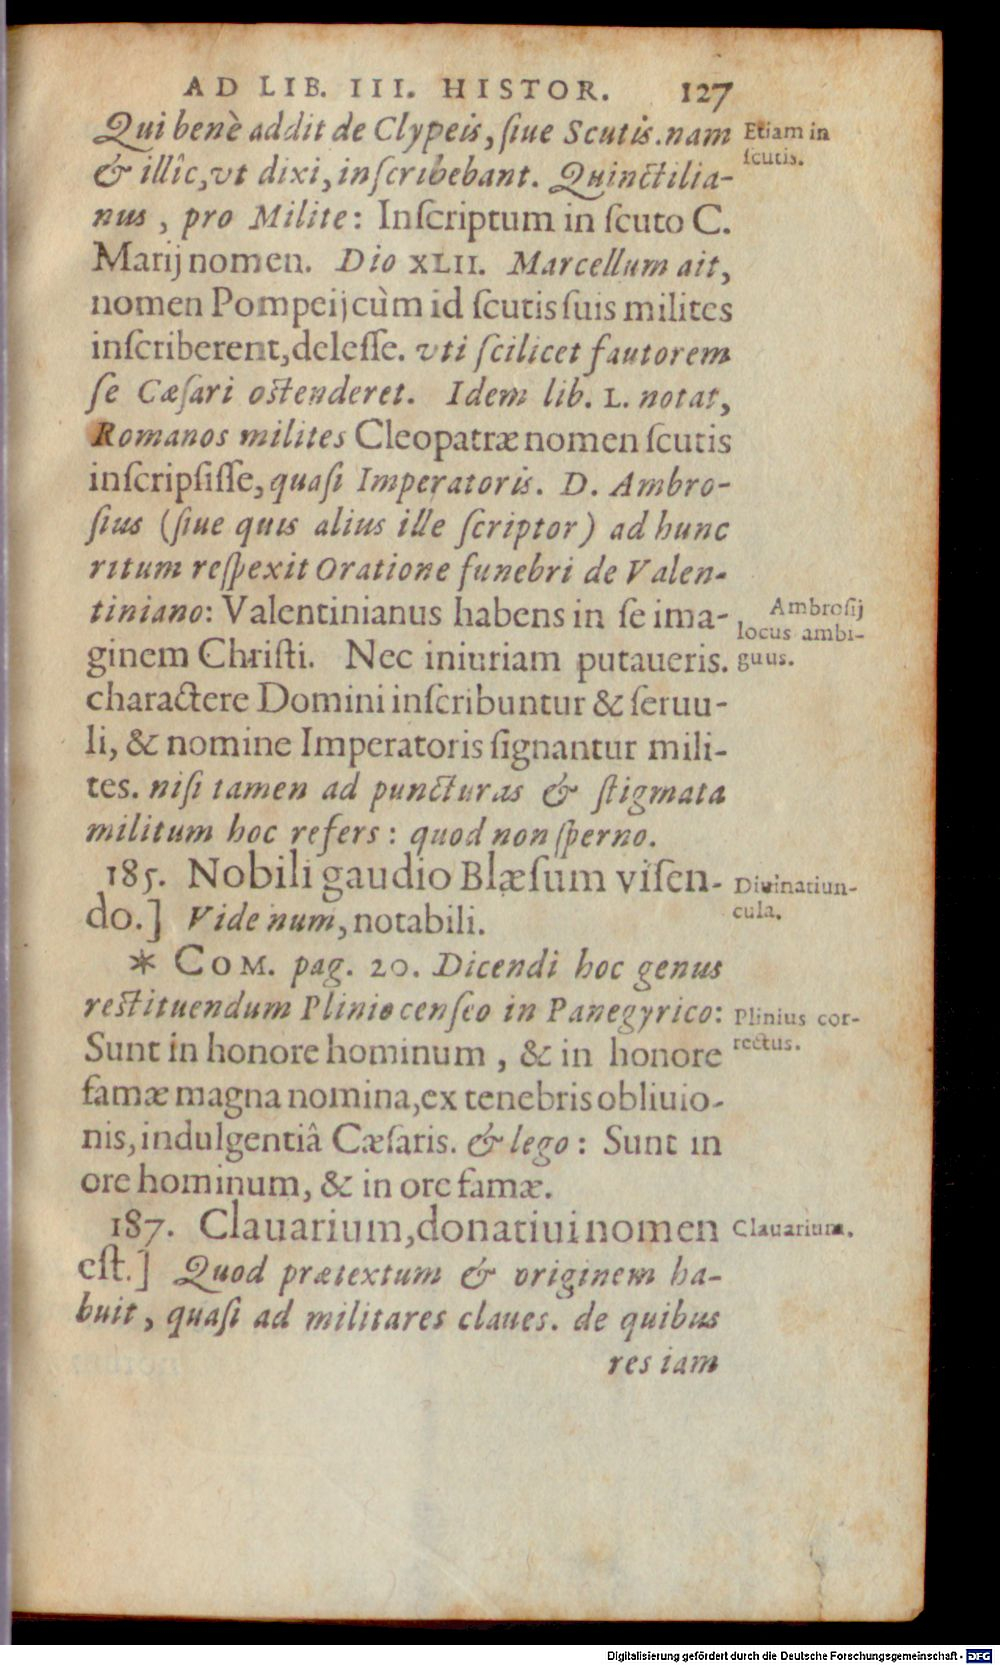 AD LIB. III. HISTOR. 127
Qui benè addit de Clypeis, ſiue Scutis. nam
Etiam in
ſcutis.
& illîc, vt dixi, inſcribebant. Quinctilia-
nus, pro Milite: Inſcriptum in ſcuto C.
Marij nomen. Dio XLII. Marcellum ait,
nomen Pompeij cùm id ſcutis ſuis milites
inſcriberent, deleſſe. vti ſcilicet fautorem
ſe Cæſari oſtenderet. Idem lib. L. notat,
Romanos milites Cleopatræ nomen ſcutis
inſcripſiſſe, quaſi Imperatoris. D. Ambro-
ſius (ſiue quis alius ille ſcriptor) ad hunc
ritum reſpexit Oratione funebri de Valen-
tiniano: Valentinianus habens in ſe ima-
Ambroſij
locus ambi-
guus.
ginem Chriſti. Nec iniuriam putaueris.
charactere Domini inſcribuntur & ſeruu-
li, & nomine Imperatoris ſignantur mili-
tes. niſi tamen ad puncturas & ſtigmata
militum hoc refers: quod non ſperno.
185. Nobili gaudio Blæſum viſen-
Diuinatiun-
cula.
do.] Vide num, notabili.
* COM. pag. 20. Dicendi hoc genus
reſtituendum Plinio cenſeo in Panegyrico:
Plinius cor-
rectus.
Sunt in honore hominum, & in honore
famæ magna nomina, ex tenebris obliuio-
nis, indulgentiâ Cæſaris. & lego: Sunt in
ore hominum, & in ore famæ.
187. Clauarium, donatiui nomen
Clauarium.
eſt.] Quod prætextum & originem ha-
buit, quaſi ad militares claues. de quibus
res iam
Digitalisierung gefördert durch die Deutsche Forschungsgemeinschaft - DFG